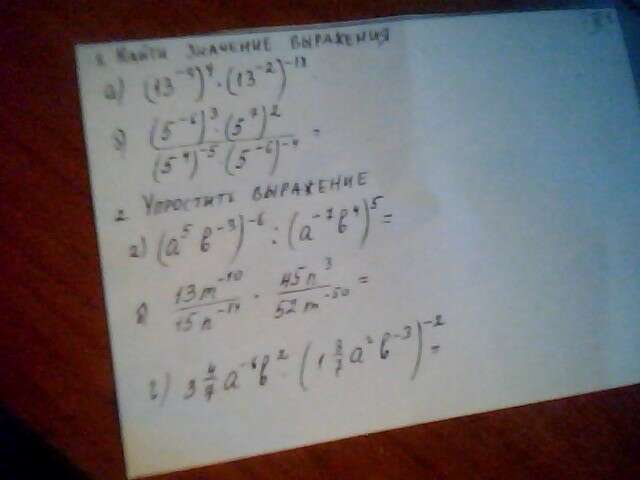 1. Найти значение выражения
а) (13⁻⁹)⁴ · (13⁻²)⁻¹⁸
б) (5⁻⁶)³ · (5⁷)² / (5⁴)⁻⁵ · (5⁻⁶)⁻⁴ =
2 Упростить выражение
а) (a⁵ b⁻³)⁻⁶ : (a⁻⁷ b⁴)⁵ =
б) 13m⁻¹⁰ / 15n⁻¹⁴ · 45n³ / 52m⁻⁵⁰ =
г) 3 4/7 a⁻⁶ b² · (1 3/7 a² b⁻³)⁻² =